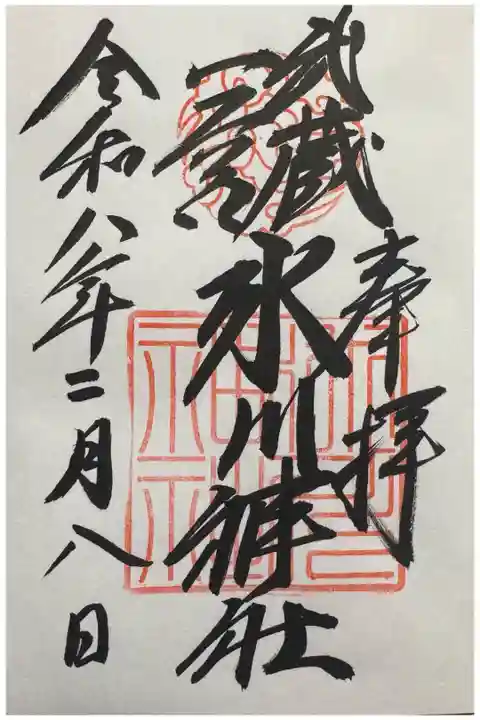 奉拝
武蔵
一宮
氷川神社
令和八年二月八日